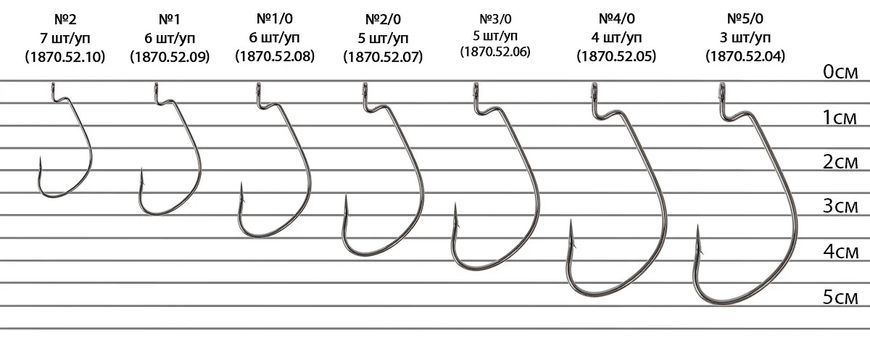 №2
7 шт/уп
(1870.52.10)
№1
6 шт/уп
(1870.52.09)
№1/0
6 шт/уп
(1870.52.08)
№2/0
5 шт/уп
(1870.52.07)
№3/0
5 шт/уп
(1870.52.06)
№4/0
4 шт/уп
(1870.52.05)
№5/0
3 шт/уп
(1870.52.04)
0см
1см
2см
3см
4см
5см